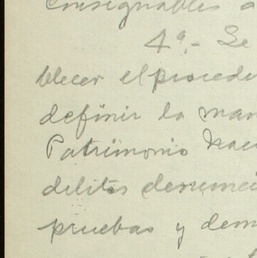 consignables a
4ª.- Se
blecer el procedi
definir la man
Patrimonio Naci
delitos denunci
pruebas y dem